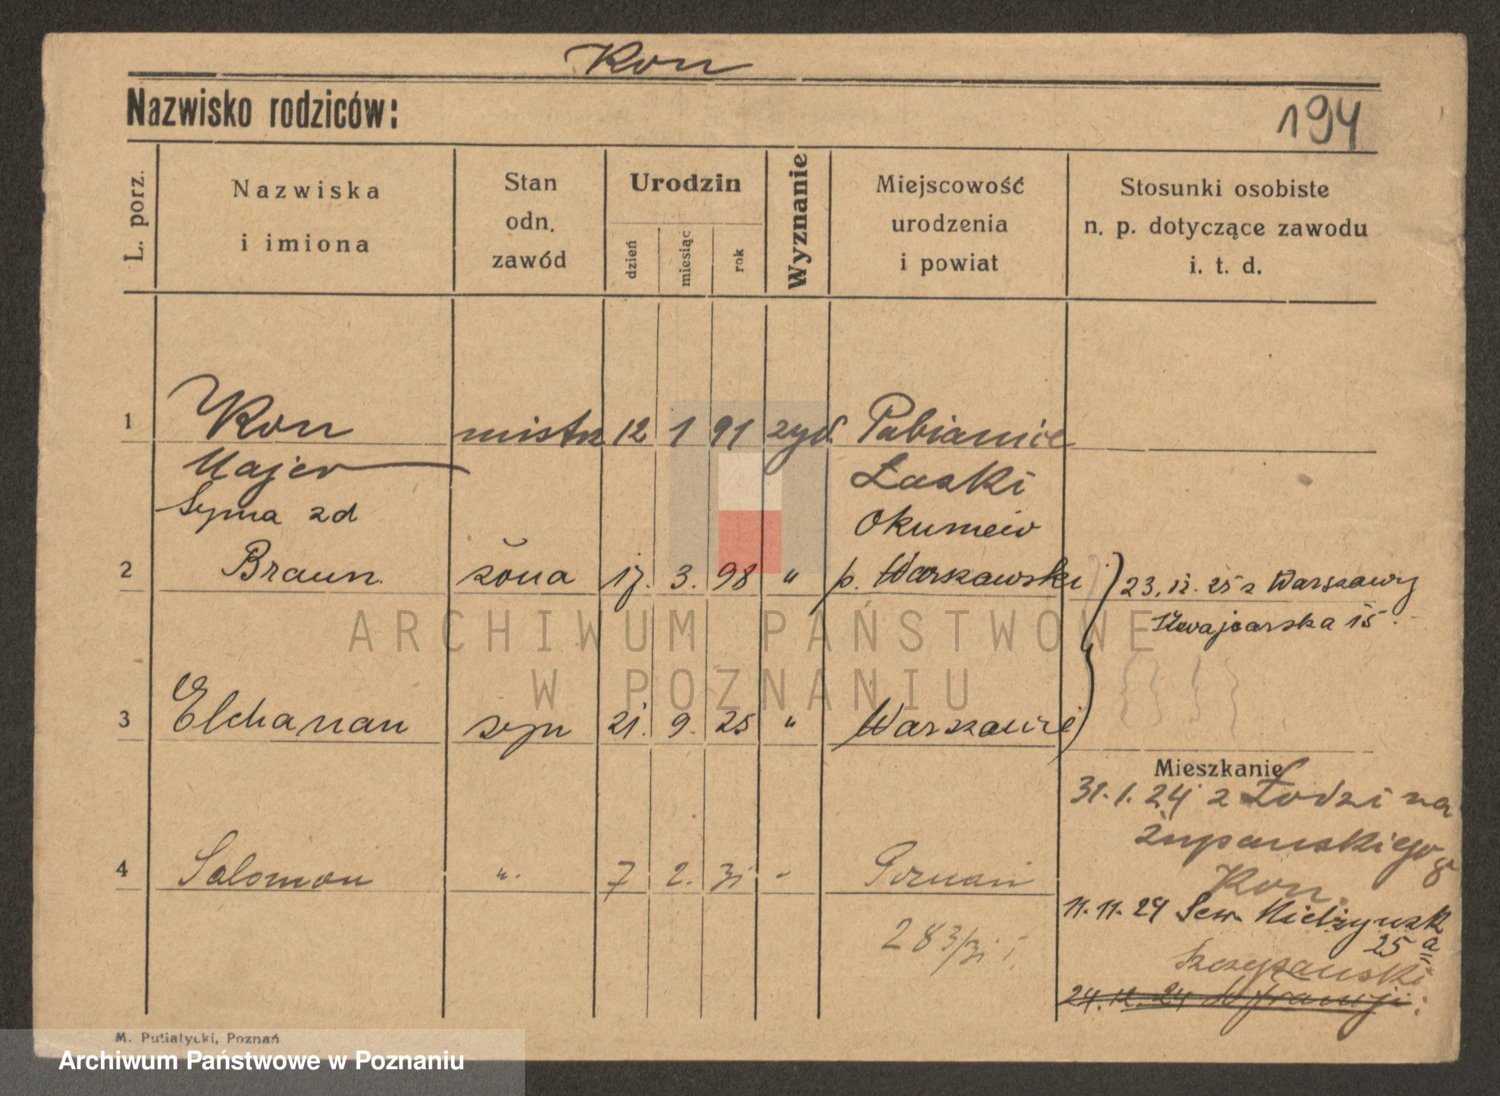 Kon
Nazwisko rodziców:
194
L. porz.
Nazwiska
i imiona
Stan
odn.
zawód
Urodzin
dzień
miesiąc
rok
Wyznanie
Miejscowość
urodzenia
i powiat
Stosunki osobiste
n. p. dotyczące zawodu
i. t. d.
1 Kon mistrz 12 1 91 żyd. Pabianice
Majer Łaski
Syma zd Okuniew
2 Braun żona 17. 3. 98 " p. Warszawski 23.12.25 z Warszawy
Szwajcarska 15.
3 Elchanan syn 21. 9. 25 " Warszawie
Mieszkanie
31.1.24 z Łodzi na
Żupańskiego
Kon.
4 Salomon " 7 2. 31 " Poznań
11.11.24 Sew. Mielżyńsk
25 a
283/31
Szczepański
24.12.24 do
M. Putiatycki, Poznań
ARCHIWUM PAŃSTWOWE
W POZNANIU
Archiwum Państwowe w Poznaniu